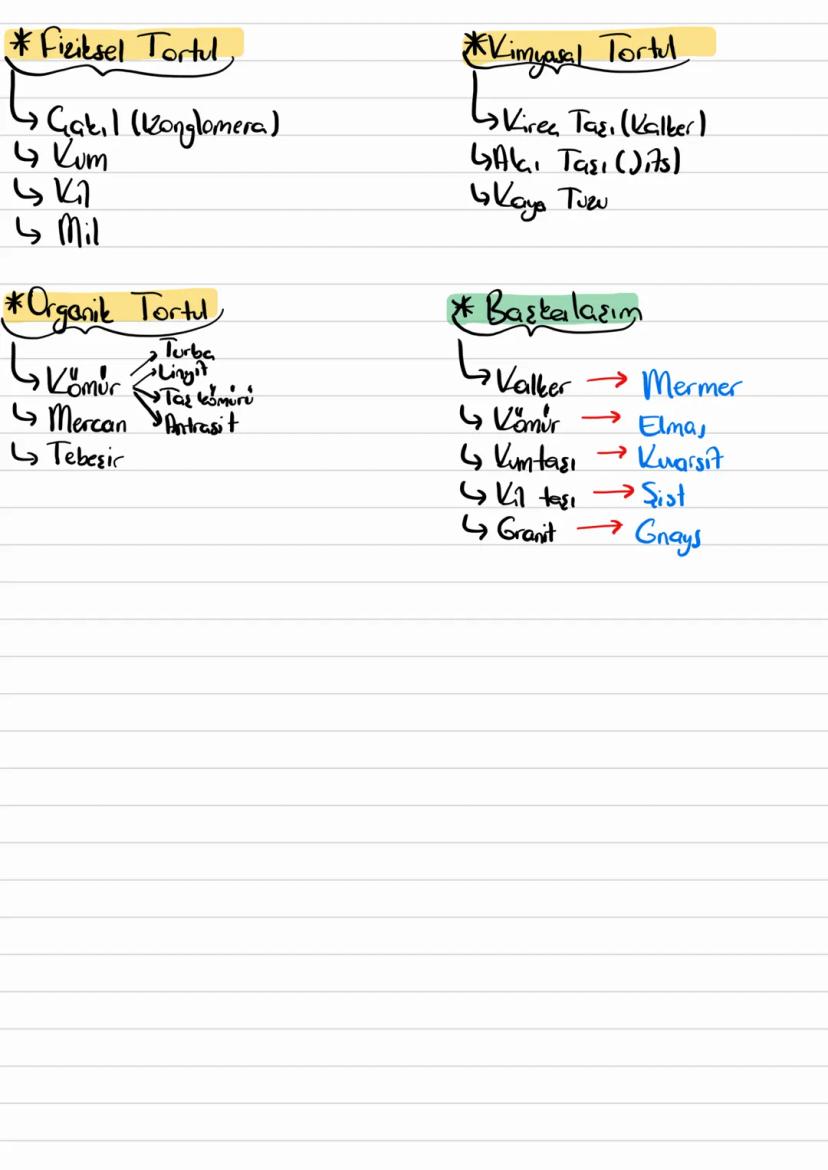 * Fiziksel Tortul
↳ Çakıl (Konglomera)
↳ Kum
↳ Kil
↳ Mil
* Kimyasal Tortul
↳ Kireç Taşı (Kalker)
↳ Alçı Taşı (Jips)
↳ Kaya Tuzu
* Organik Tortul
↳ Kömür
→ Turba
→ Linyit
→ Taş kömürü
→ Antrasit
↳ Mercan
↳ Tebeşir
* Başkalaşım
↳ Kalker → Mermer
↳ Kömür → Elmas
↳ Kumtaşı → Kuvarsit
↳ Kil taşı → Şist
↳ Granit → Gnays